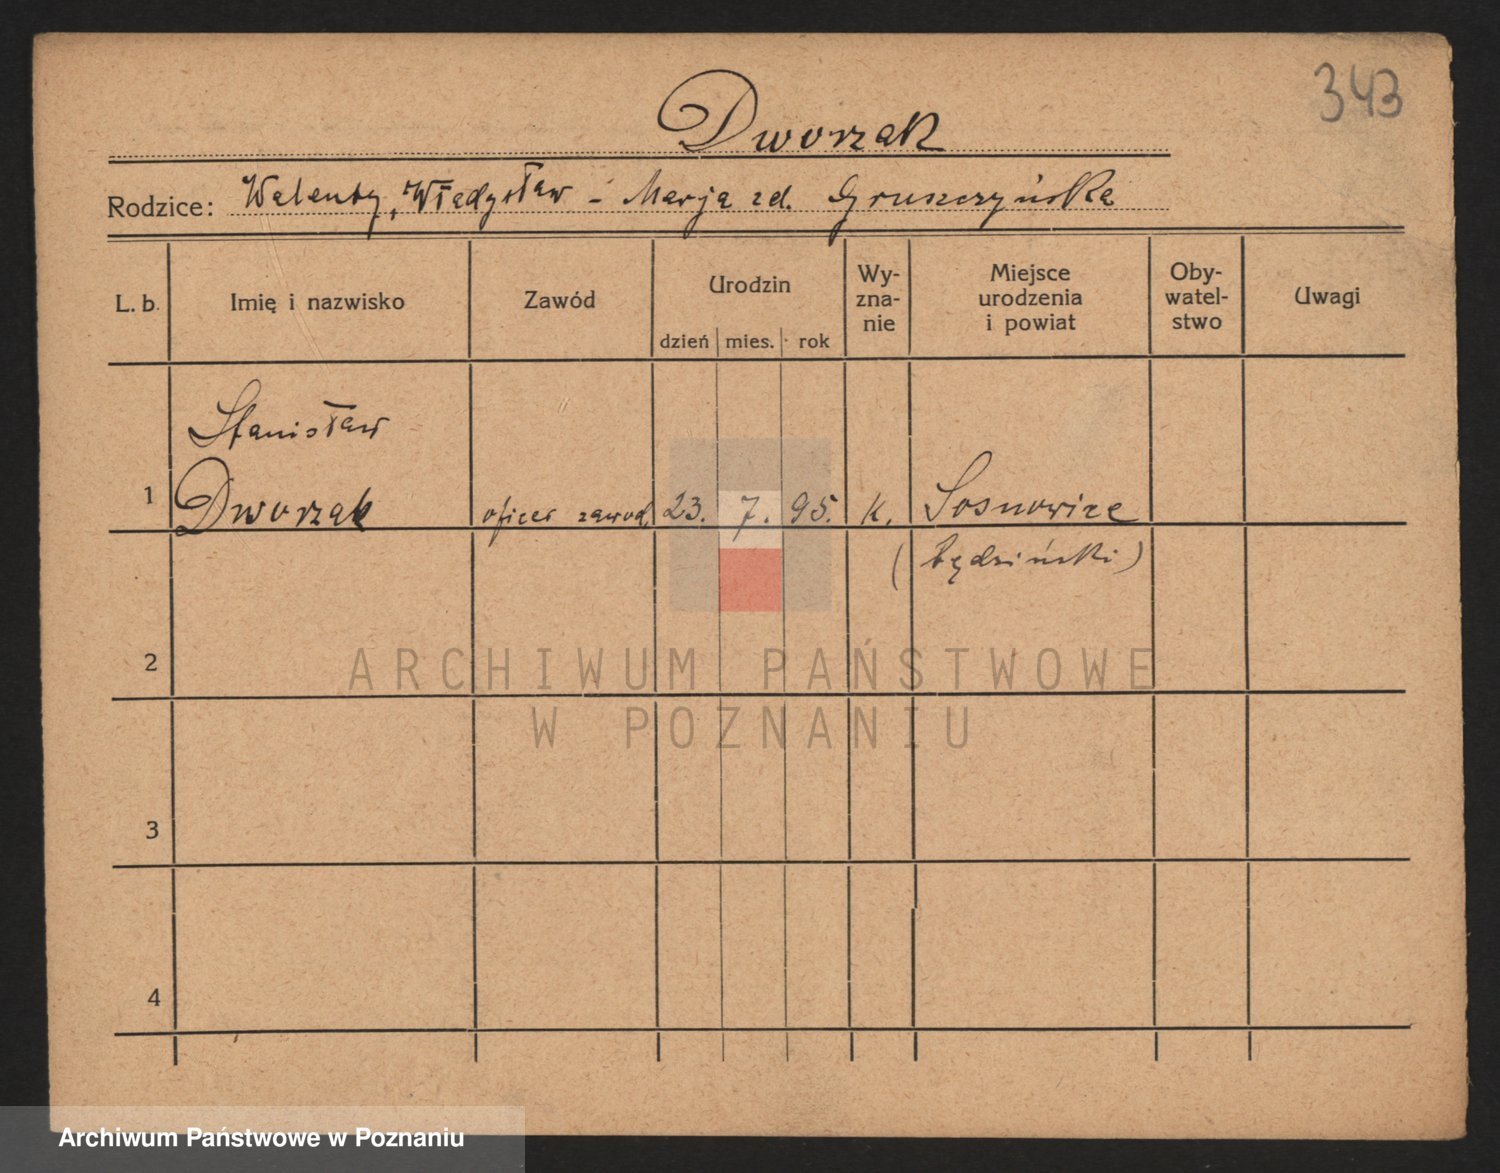 343
Dworzak
Rodzice: Walenty, Władysław - Marja zd. Gruszczyńska
L. b. Imię i nazwisko Zawód Urodzin dzień mies. rok Wy-zna-nie Miejsce urodzenia i powiat Oby-watel-stwo Uwagi
Stanisław
1 Dworzak oficer zawod. 23. 7. 95. K. Sosnowice
(będziński)
2
ARCHIWUM PAŃSTWOWE
W POZNANIU
3
4
Archiwum Państwowe w Poznaniu